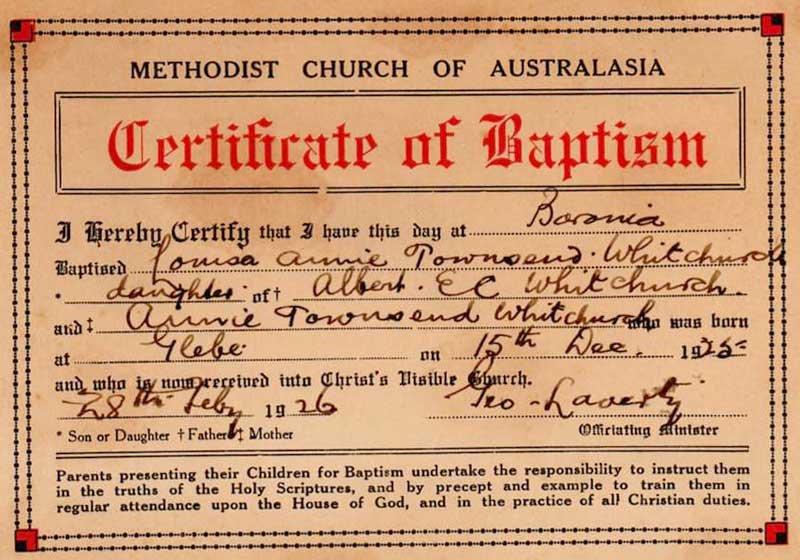 METHODIST CHURCH OF AUSTRALASIA
Certificate of Baptism
I Hereby Certify that I have this day at Boronia
Baptised Louisa Annie Townsend. Whitchurch
daughter. of† Albert. E C Whitchurch.
and‡ Annie Townsend Whitchurch who was born
at Glebe on 15th Dec. 1925
and who is now received into Christ's Visible Church.
28th Feby 1926 Geo. Laverty
* Son or Daughter † Father ‡ Mother Officiating Minister
Parents presenting their Children for Baptism undertake the responsibility to instruct them
in the truths of the Holy Scriptures, and by precept and example to train them in
regular attendance upon the House of God, and in the practice of all Christian duties.